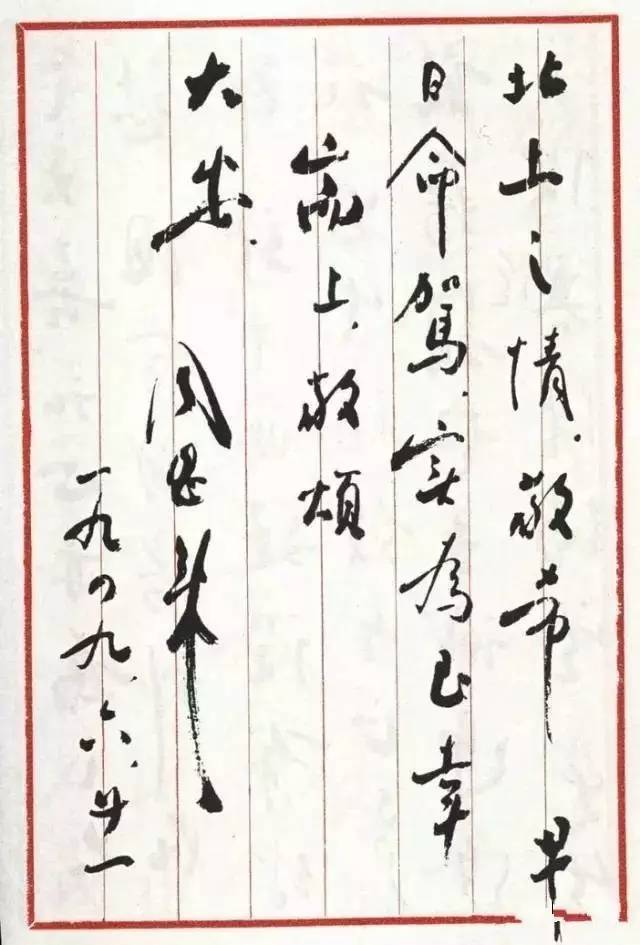 北上之情.敬希 早
日命駕.实為至幸
耑上.敬頌
大安. 周恩来
一九四九.六.廿一